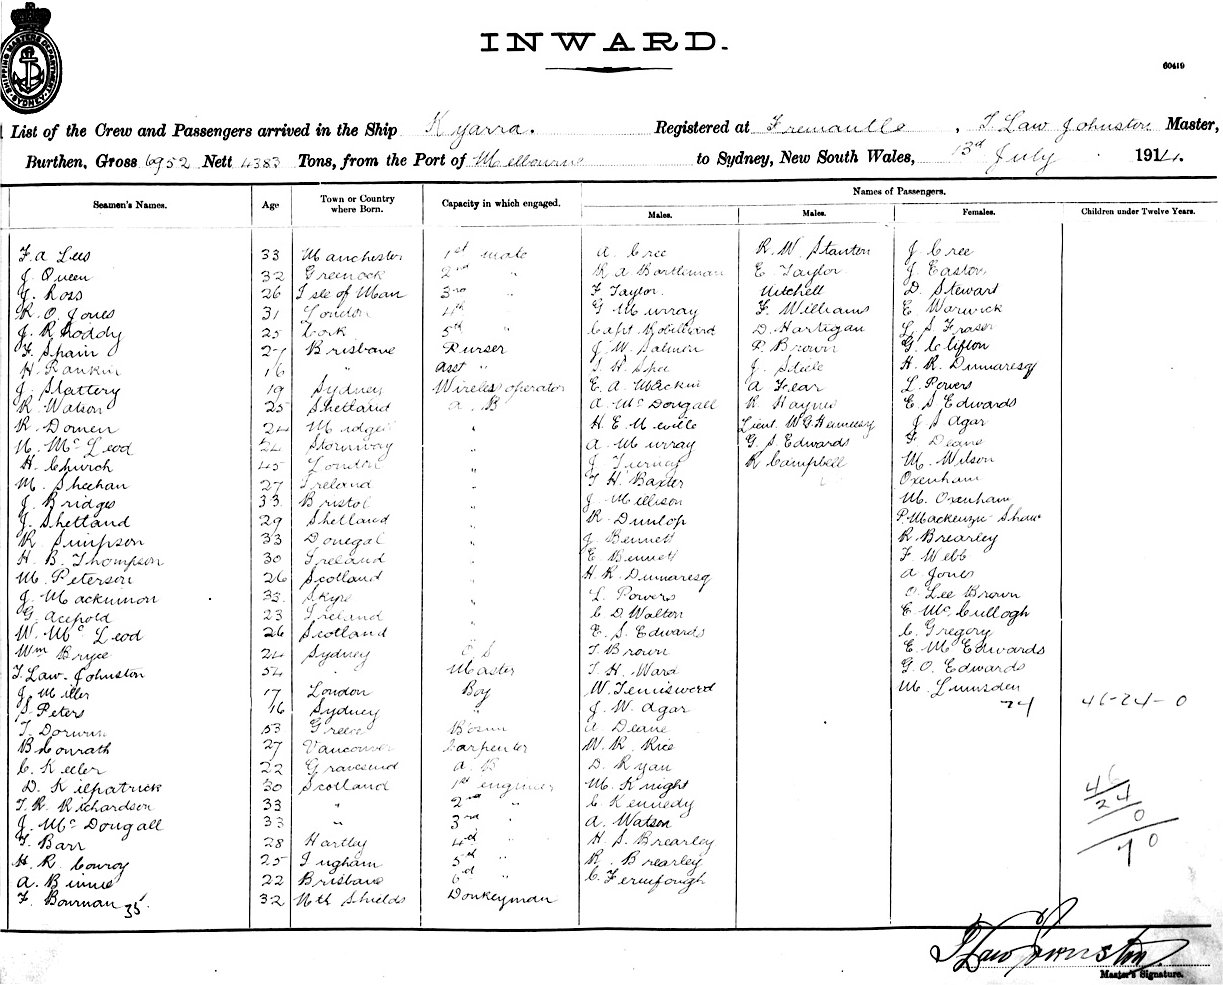 SHIPPING MASTER'S DEPARTMENT SYDNEY
INWARD.
60419
List of the Crew and Passengers arrived in the Ship Kyarra. Registered at Fremantle, T Law Johnston Master,
Burthen, Gross 6952 Nett 4383 Tons, from the Port of Melbourne to Sydney, New South Wales, 13th July 1914.
Seamen's Names. Age Town or Country where Born. Capacity in which engaged. Names of Passengers.
Males. Males. Females. Children under Twelve Years.
F. A Lees 33 Manchester 1st mate A. Cree R. W. Stanton J Cree
J. Queen 32 Greenock 2nd " R A Bartliman E Taylor J. Easton
J. Ross 26 Isle of Man 3rd " F Taylor. Mitchell D. Stewart
R. O. Jones 31 London 4th " G Murray F. Williams E Warwick
J. R Roddy 25 Cork 5th " Capt Robilliard D. Hartegan L S Fraser
F. Spain 27 Brisbane Purser J. W. Salmon P. Brown G. Clifton
H. Rankin 16 " Asst " T. H. Shee J. Steele H. R. Dumaresq
J. Slattery 19 Sydney Wireless operator E. A. Mackin A Fear L. Powers
R. Watson 25 Shetland A. B A. McDougall R. Haynes E. S Edwards
R. Domen 24 " H. E. Neville Lieut. W G Hennessy J S Agar
N. McLeod 24 Stornoway " A. Murray G. S Edwards F Deane
H. Church 45 London " J Tierney R Campbell M. Wilson
M. Sheehan 27 Ireland " T H Baxter Oxenham
J. Bridges 33. Bristol " J. Mellison M. Oxenham
J. Shetland 29 Shetland " R. Dunlop P. Mackenzie Shaw
R. Simpson 33 Donegal " J Bennett R Brearley
H. B. Thompson 30 Ireland " E Bennett F Webb
M. Peterson 26 Scotland " H. R. Dumaresq A Jones
J. Mackinnon 33. Skye " L. Powers O. Lee Brown
G. Acepold 23 Ireland " C D Walton E McCullogh
W. McLeod 26 Scotland " E. S. Edwards C. Gregory
Wm Bryce 24 Sydney O S T Brown E. M Edwards
T. Law. Johnston 54 " Master T. H. Ward G. O. Edwards
J Miller 17 London Boy W. M. Lumsden
S. Peters 16 Sydney " J. W. Agar 24 46-24-0
T. 53 Greece Bosun A Deane
B Conrath 27 Vancouver Carpenter W. R. Rice
C. Keller 22 Gravesend A. B D. Ryan
D. Kilpatrick 30 Scotland 1st engineer M. Knight 46
T. R. Richardson 33 " 2nd " C Kennedy 24
J. McDougall 33 " 3rd " A. Watson 0
T. Barr 28 Hartley 4th " H. S. Brearley
H. R. Conroy 25 Ingham 5th " R. Brearley 70
A. Binnie 22 Brisbane 6th " C.
F. Bowman 35. 32 Nth Shields Donkeyman
T Law Johnston
Master's Signature.